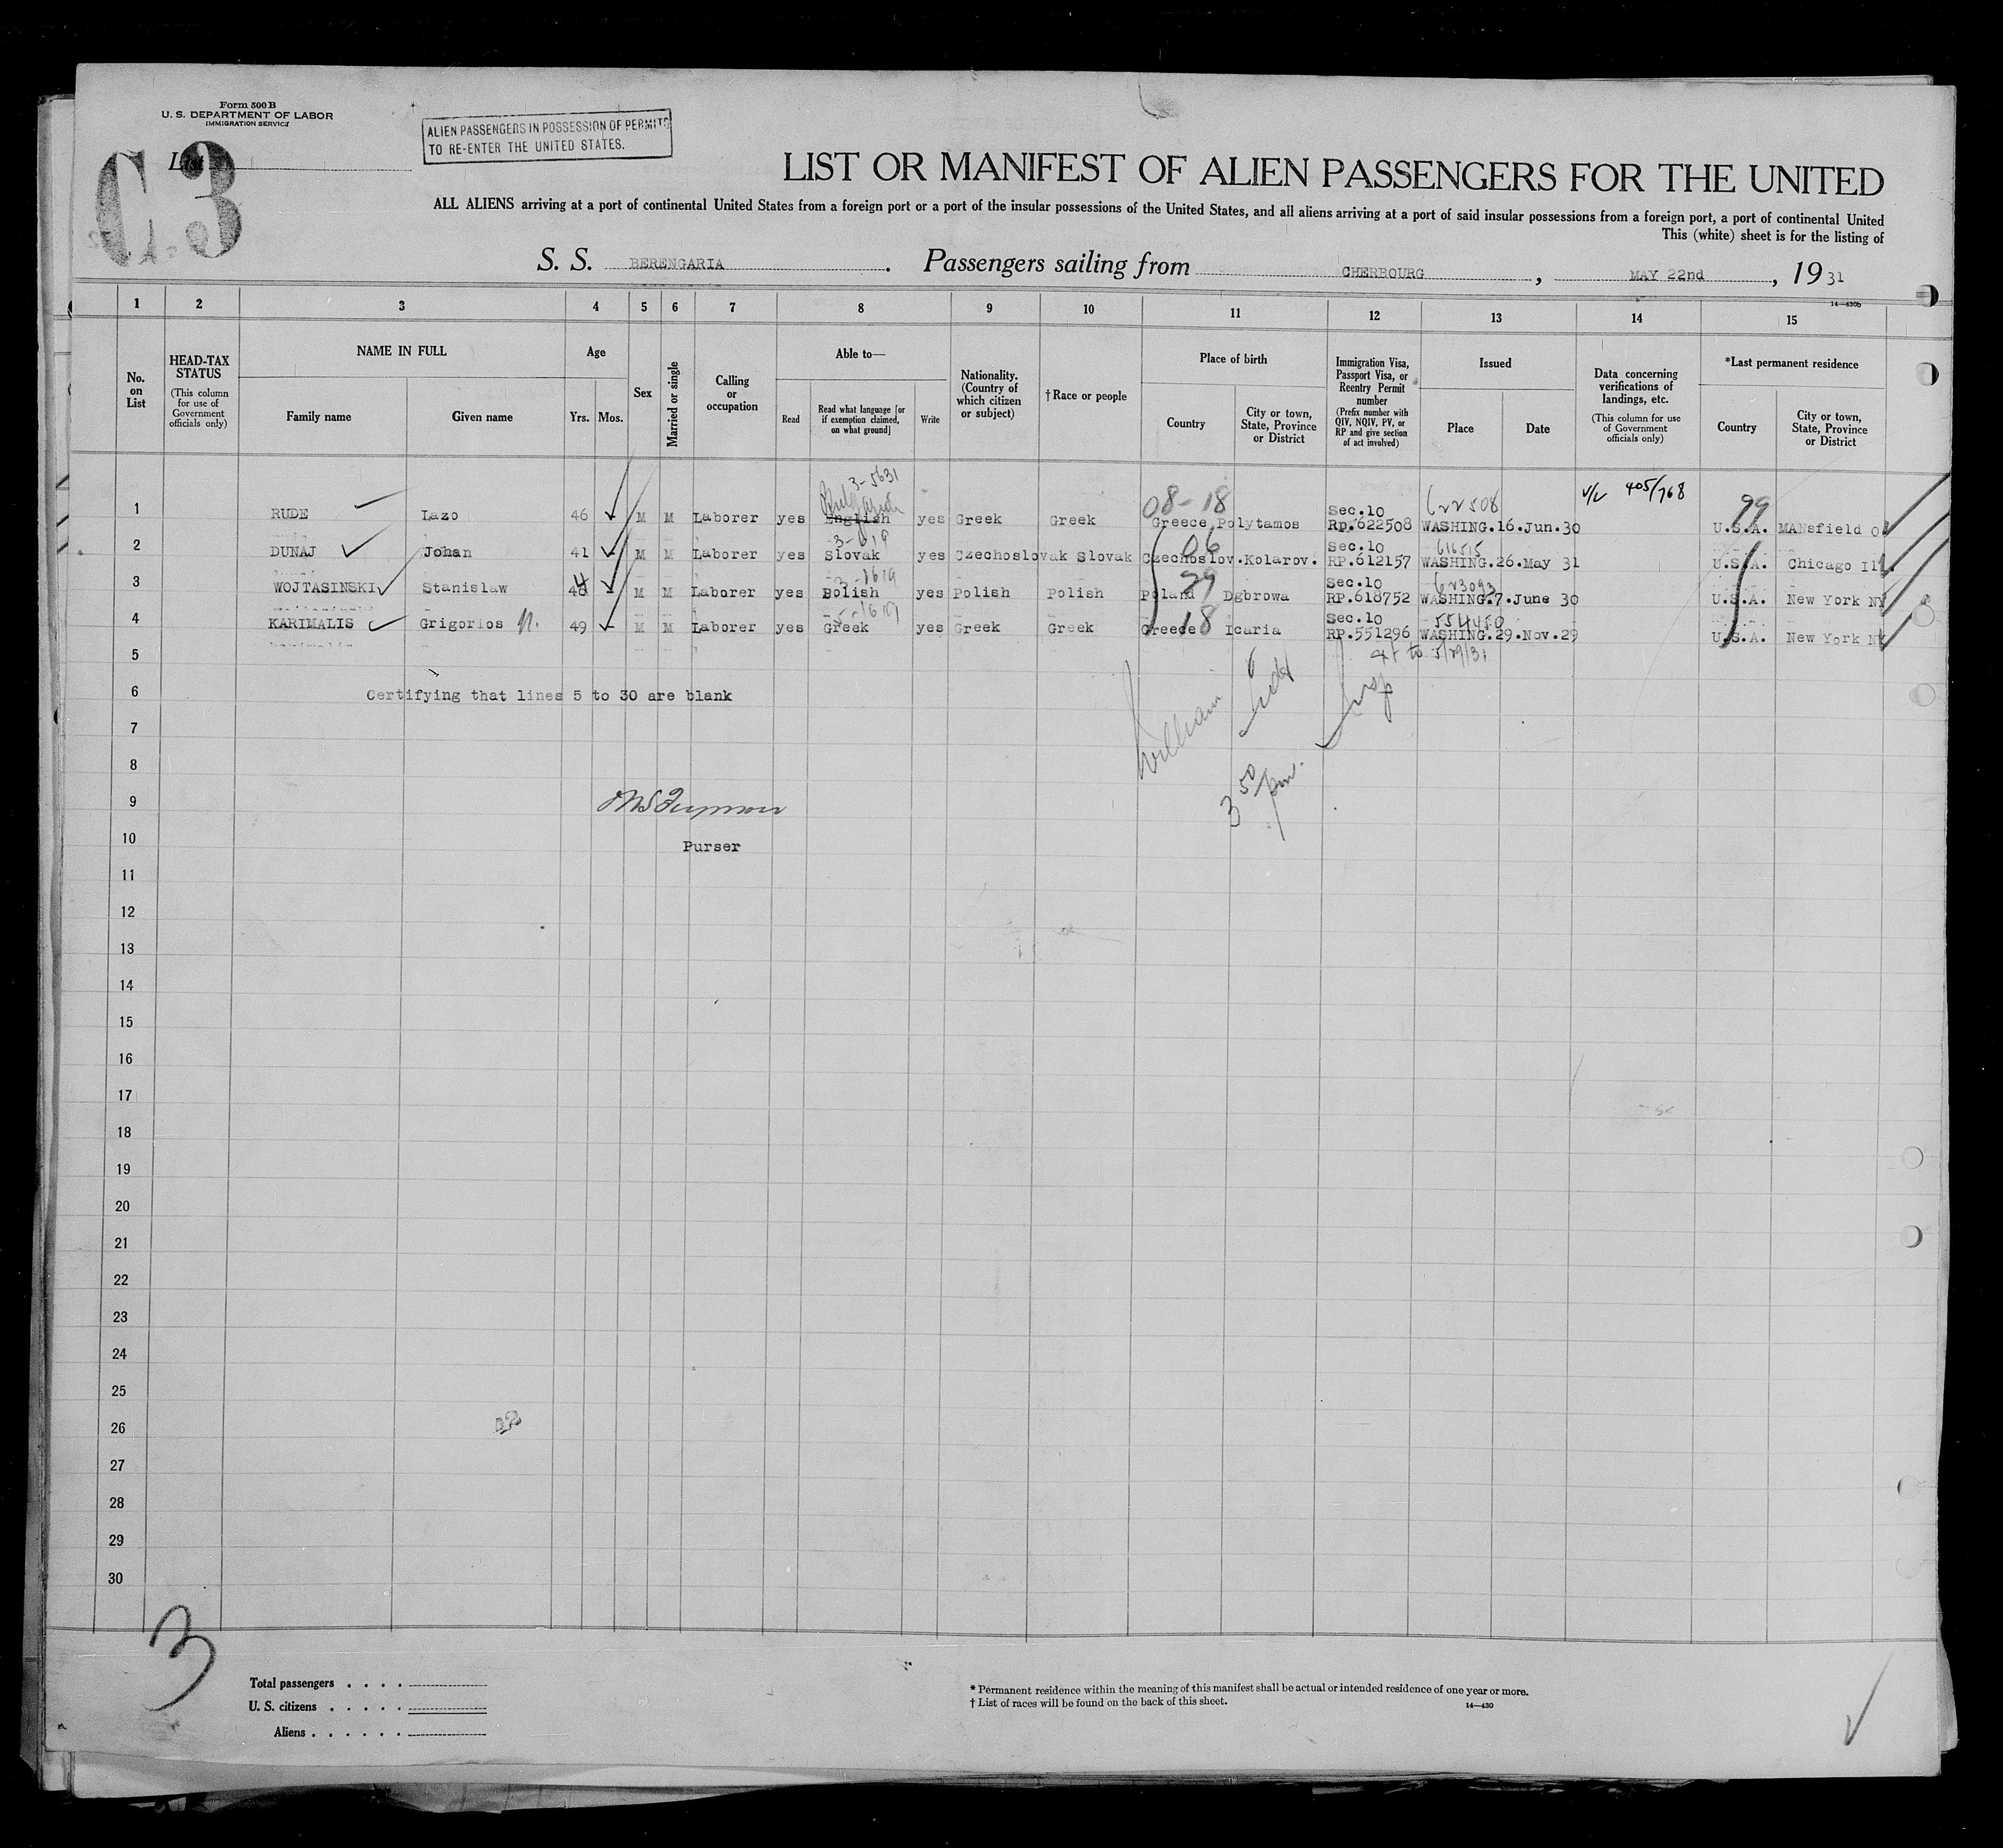 Form 500 B
U. S. DEPARTMENT OF LABOR
IMMIGRATION SERVICE
List
C3
ALIEN PASSENGERS IN POSSESSION OF PERMITS
TO RE-ENTER THE UNITED STATES.
LIST OR MANIFEST OF ALIEN PASSENGERS FOR THE UNITED
ALL ALIENS arriving at a port of continental United States from a foreign port or a port of the insular possessions of the United States, and all aliens arriving at a port of said insular possessions from a foreign port, a port of continental United
This (white) sheet is for the listing of
S. S. BERENGARIA. Passengers sailing from CHERBOURG, MAY 22nd, 1931
14—430b
1 2 3 4 5 6 7 8 9 10 11 12 13 14 15
No. on List
HEAD-TAX STATUS (This column for use of Government officials only)
NAME IN FULL
Family name
Given name
Age
Yrs. Mos.
Sex
Married or single
Calling or occupation
Able to—
Read
Read what language [or if exemption claimed, on what ground]
Write
Nationality. (Country of which citizen or subject)
†Race or people
Place of birth
Country
City or town, State, Province or District
Immigration Visa, Passport Visa, or Reentry Permit number (Prefix number with QIV, NQIV, PV, or RP and give section of act involved)
Issued
Place
Date
Data concerning verifications of landings, etc. (This column for use of Government officials only)
*Last permanent residence
Country
City or town, State, Province or District
3-5631
08-18 622508 405/768 99
1 RUDE Lazo 46 M M Laborer yes English Bulgarian yes Greek Greek Greece Polytamos Sec.10 Rp.622508 WASHING.16.Jun.30 U.S.A. MANsfield O
3-619 06 616515
2 DUNAJ Johan 41 M M Laborer yes Slovak yes Czechoslovak Slovak Czechoslov.Kolarov. Sec.10 RP.612157 WASHING.26.May 31 U.S.A. Chicago Ill.
3-1619 29 623093
3 WOJTASINSKI Stanislaw 48 M M Laborer yes Polish yes Polish Polish Poland Dgbrowa Sec.10 RP.618752 WASHING.7.June 30 U.S.A. New York NY
5-1619 18 554450
4 KARIMALIS Grigorios N. 49 M M Laborer yes Greek yes Greek Greek Greece Icaria Sec.10 RP.551296 WASHING.29.Nov.29 U.S.A. New York NY
5 to 5/29/31
6 Certifying that lines 5 to 30 are blank
William Insp
7
8
3 50 pm.
9
10 Purser
11
12
13
14
15
16
17
18
19
20
21
22
23
24
25
26
27
28
29
30
3
Total passengers . . . .
U. S. citizens . . . . .
Aliens . . . . . .
* Permanent residence within the meaning of this manifest shall be actual or intended residence of one year or more.
† List of races will be found on the back of this sheet.
14—430